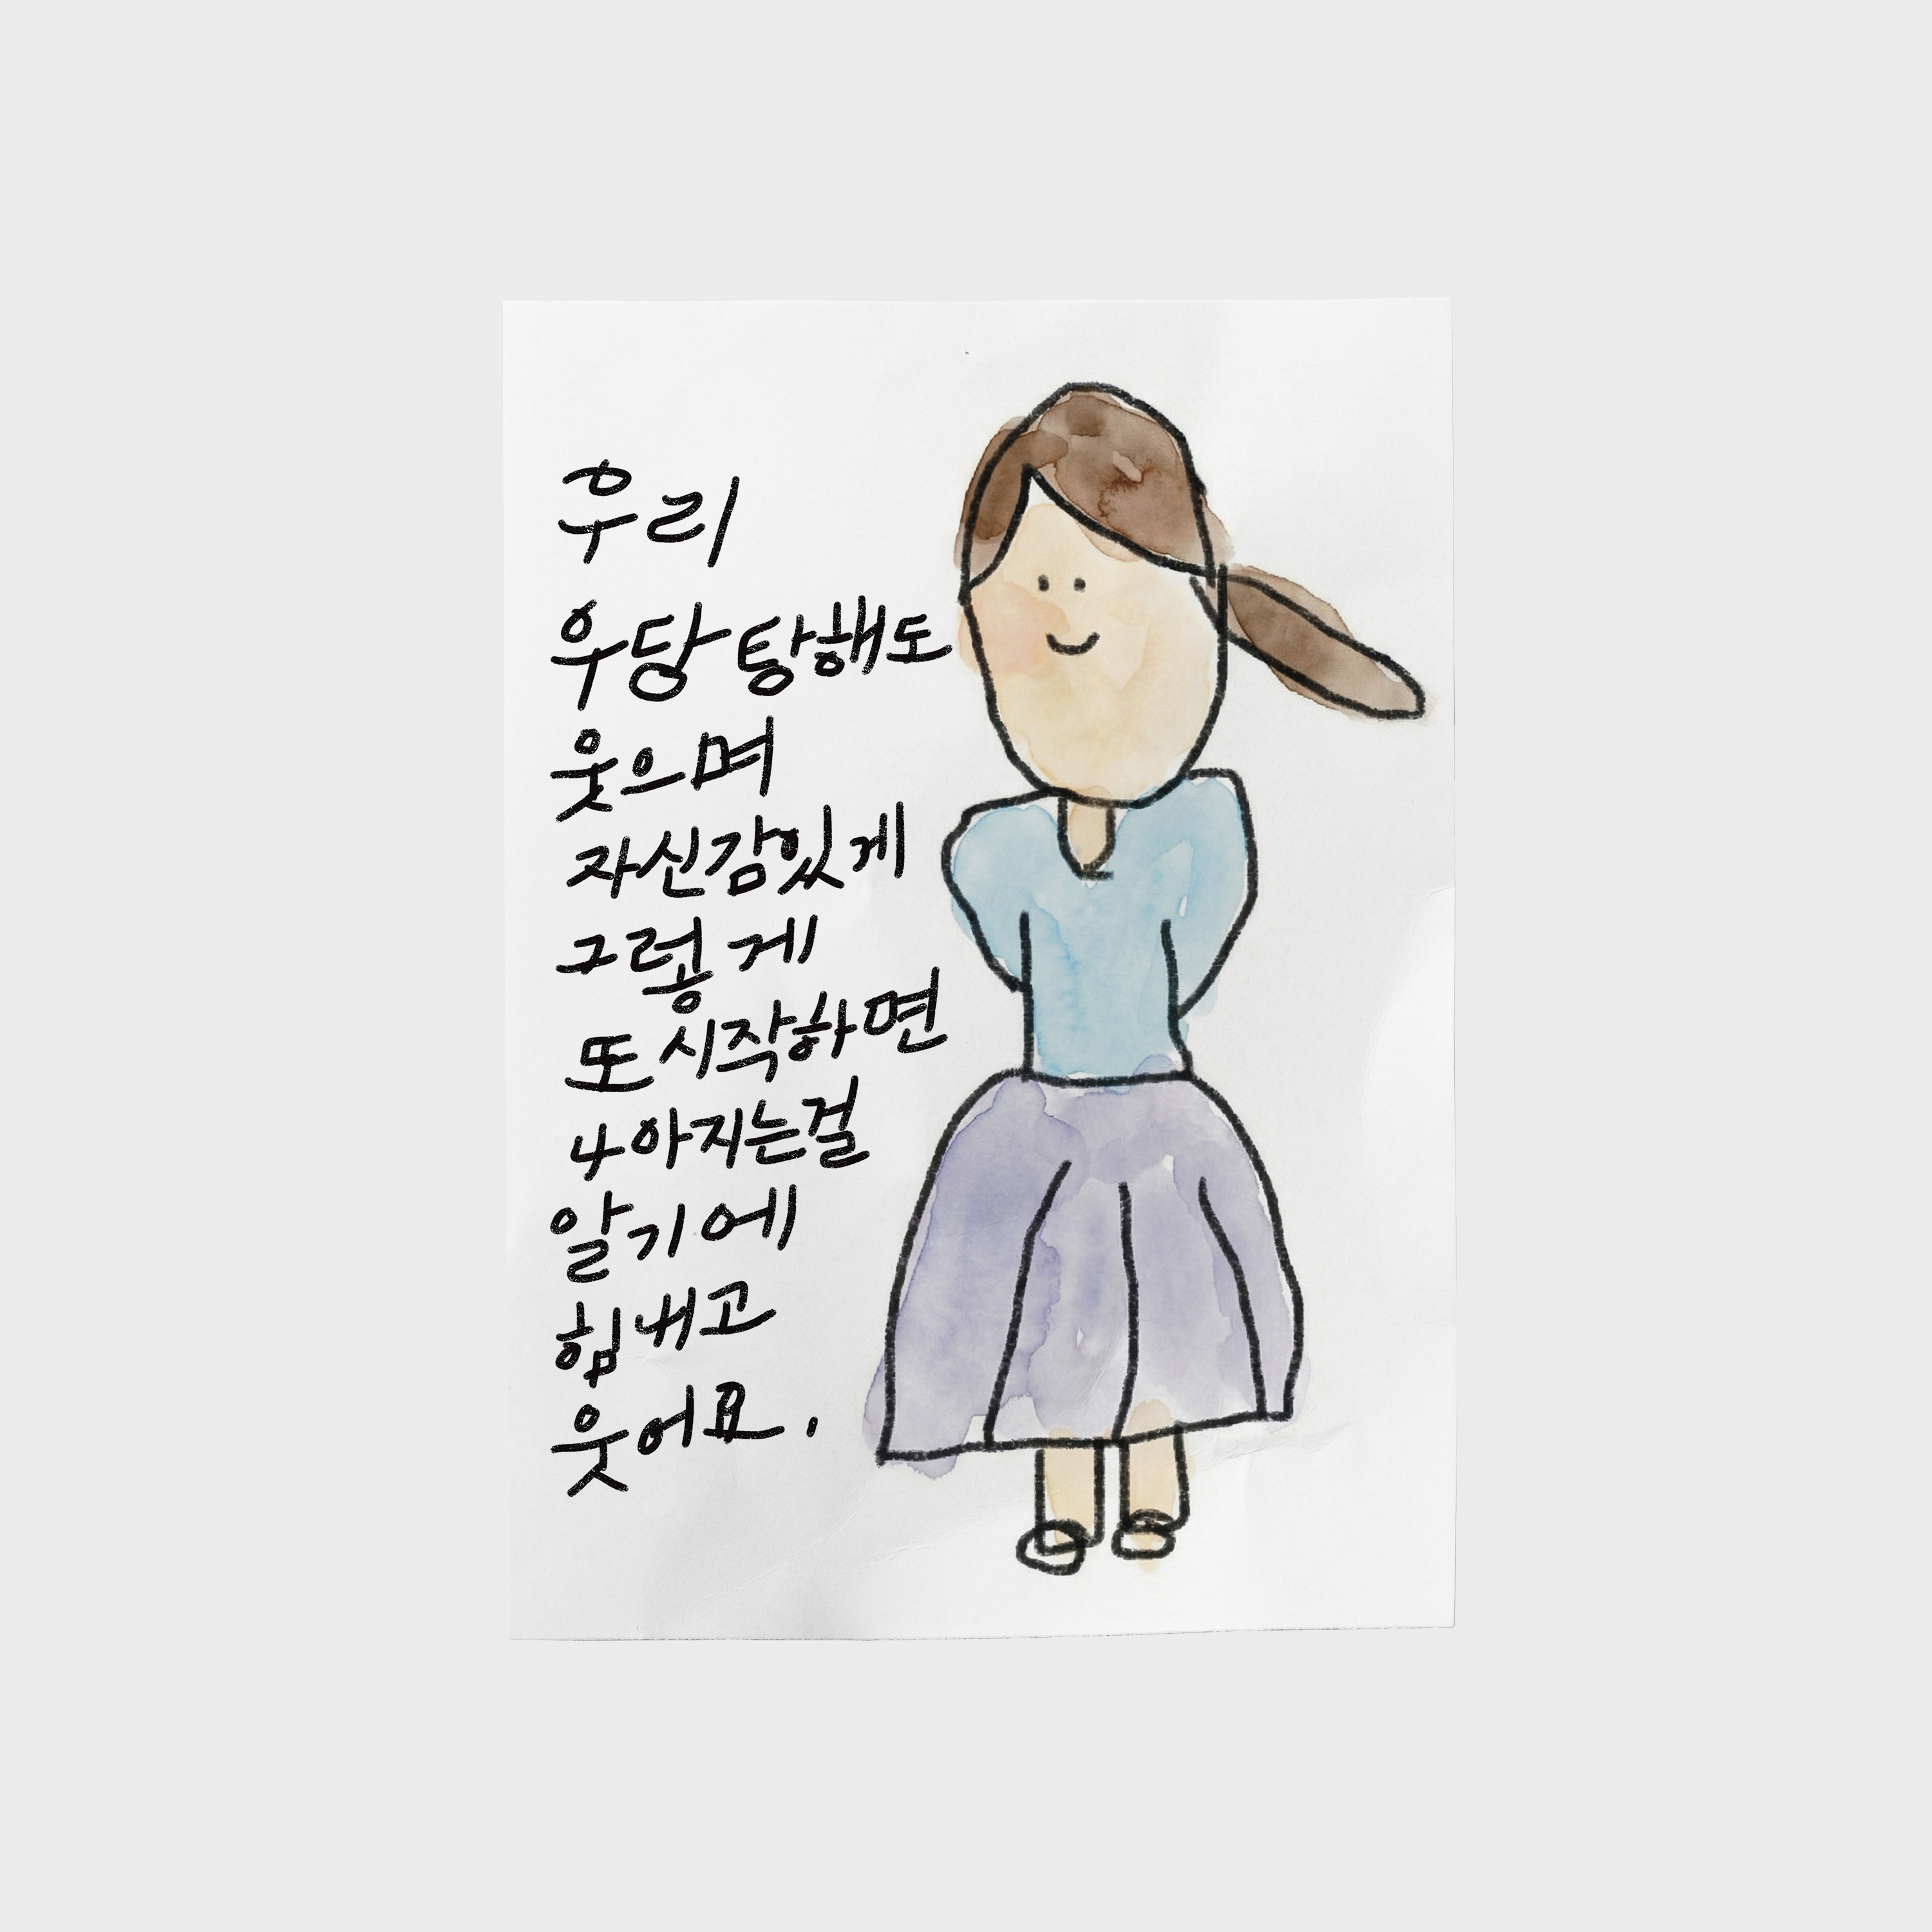 우리
우당탕해도
웃으며
자신감있게
그렇게
또시작하면
나아지는걸
알기에
힘내고
웃어요.